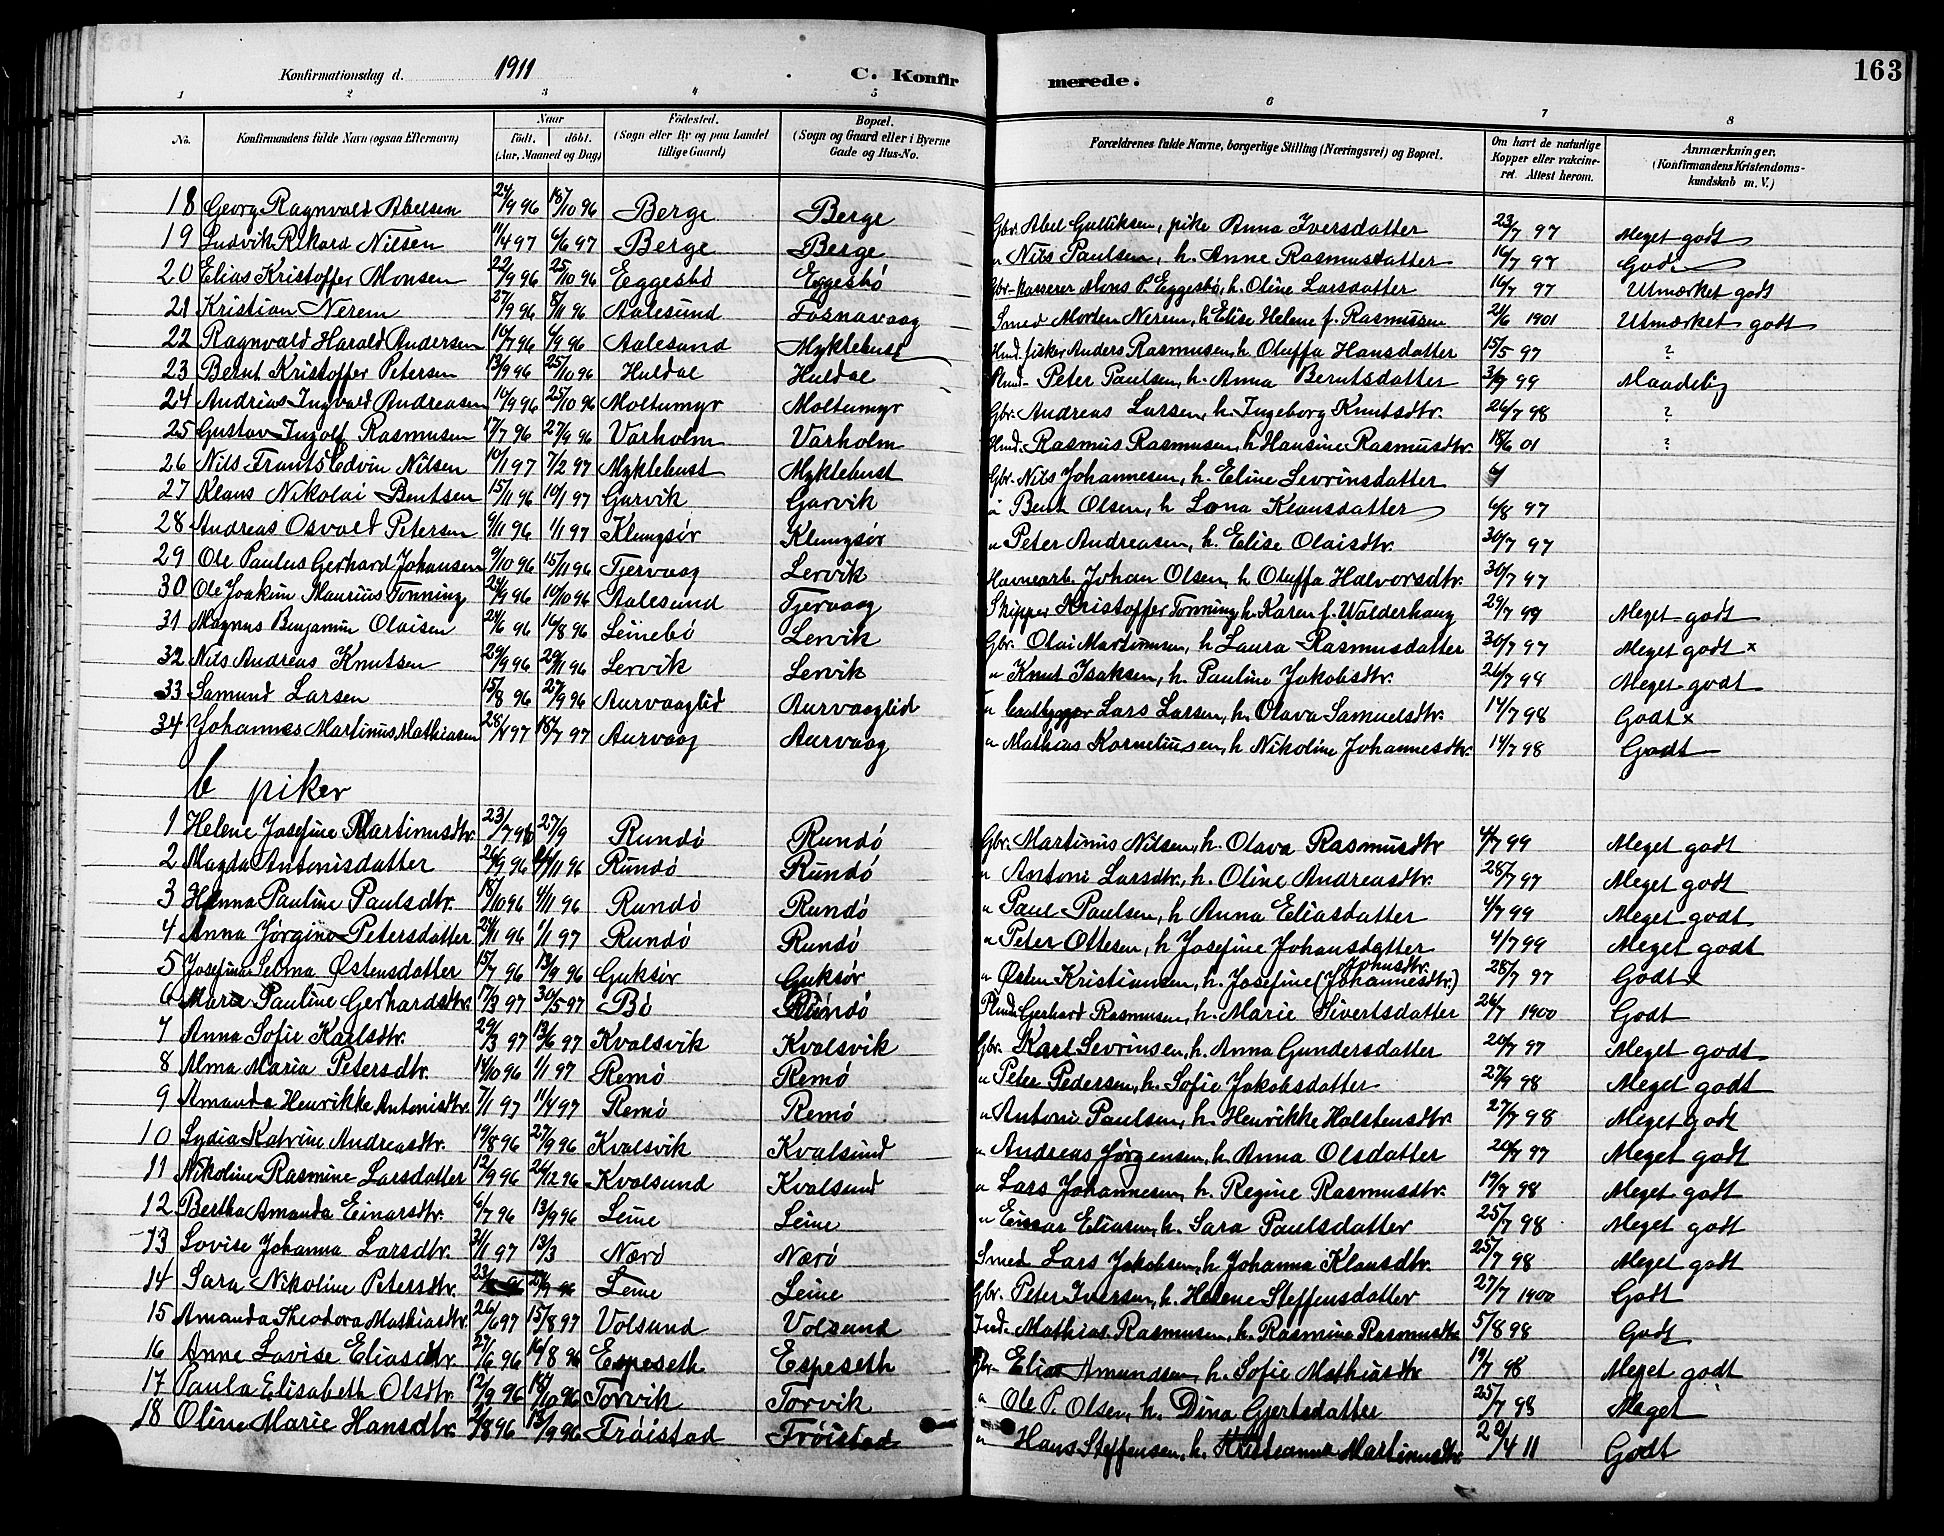 163
Konfirmationsdag d. 1911 C. Konfirmerede.
1 2 3 4 5 6 7 8
No. Konfirmandens fulde Navn (ogsaa Efternavn) Naar født. døbt. (Aar, Maaned og Dag) Fødested. (Sogn eller By og paa Landet tillige Gaard) Bopæl. (Sogn og Gaard eller i Byerne Gade og Hus-No. Forældrenes fulde Navne, borgerlige Stilling (Næringsvei) og Bopæl. Om havt de naturlige Kopper eller vakcineret. Attest herom. Anmærkninger. (Konfirmandens Kristendomskundskab m. V.)
18 Georg Ragnvald Abelsen 24/9 96 18/10 96 Berge Berge Gbr. Abel Gulliksen, pike Anna Iversdatter 23/7 97 Meget godt
19 Ludvik Rikard Nilsen 11/4 97 6/6 97 Berge Berge " Nils Paulsen, h. Anne Rasmusdatter 16/7 97 Godt
20 Elias Kristoffer Monsen 22/9 96 25/10 96 Eggesbø Eggesbø Gbr-kasserer Mons P. Eggesbø, h. Oline Larsdatter 16/7 97 Utmærket godt
21 Kristian Nerem 27/9 96 8/11 96 Aalesund Fosnavaag Smed Morten Nerem, h. Elise Helene f. Rasmussen 21/6 1901 Utmærket godt
22 Ragnvald Harald Andersen 10/7 96 6/9 96 Aalesund Myklebust Hmd. fisker Anders Rasmusen, h. Oluffa Hansdatter 15/5 97 ?
23 Bernt Kristoffer Petersen 13/9 96 25/10 96 Huldal Huldal Peter Paulsen, h. Anna Berntsdatter 3/9 99 Maadelig
24 Andreas Ingvald Andreasen 10/9 96 25/10 96 Moltumyr Moltumyr Gbr. Andreas Larsen, h. Ingeborg Knutsdtr. 26/7 98 ?
25 Gustav Ingolf Rasmusen 17/7 96 27/9 96 Varholm Varholm Hmd. Rasmus Rasmusen, h. Hansine Rasmusdtr. 18/6 01 ?
26 Nils Frants Edvin Nilsen 10/1 97 7/2 97 Myklebust Myklebust Gbr. Nils Johannesen, h. Eline Sevrinsdatter
27 Klaus Nikolai Bentsen 15/11 96 10/1 97 Gurvik Gurvik " Bent Olsen, h. Lona Klausdatter 6/8 97
28 Andreas Osvald Petersen 9/11 96 1/1 97 Klungsør Klungsør " Peter Andreasen, h. Elise Olaisdtr. 30/7 97
29 Ole Paulus Gerhard Johansen 9/10 96 15/11 96 Tjervaag Lervik Havnearb. Johan Olsen, h. Oluffa Halvorsdtr. 30/7 97
30 Ole Joakim Maurius Tonning 24/9 96 10/10 96 Aalesund Tjervaag Skipper Kristoffer Tonning, h. Karen f. Walderhaug 29/7 99 Meget godt
31 Magnus Benjamin Olaisen 24/6 96 16/8 96 Leinebø Lervik Gbr. Olai Martinusen, h. Laura Rasmusdatter 30/7 97 Meget godt x
32 Nils Andreas Knutsen 29/9 96 29/11 96 Lervik Lervik " Knut Isaksen, h. Pauline Jakobsdtr. 26/7 98 Meget godt
33 Samund Larsen 15/8 96 27/9 96 Aurvaaglid Aurvaaglid " Lars Larsen, h. Olava Samuelsdtr. 14/7 98 Godt x
34 Johannes Martinus Mathiasen 28/4 97 18/7 97 Aurvaag Aurvaag " Mathias Korneliusen, h. Nikoline Johannesdtr. 14/7 98 Godt
b piker
1 Helene Josefine Martinusdtr. 23/7 96 27/9 Rundø Rundø Gbr. Martinus Nilsen, h. Olava Rasmusdtr 4/7 99 Meget godt
2 Magda Antonisdatter 26/9 96 /11 96 Rundø Rundø " Antoni Larsdtr., h. Oline Andreasdtr. 28/7 97 Meget godt
3 Hanna Pauline Paulsdtr. 18/10 96 4/11 96 Rundø Rundø " Paul Paulsen, h. Anna Eliasdatter 4/7 99 Meget godt
4 Anna Jørgine Petersdatter 24/11 96 1/1 97 Rundø Rundø " Peter Ottesen, h. Josefine Johansdatter 4/7 99 Meget godt
5 Josefine Selma Østensdatter 15/7 96 13/9 96 Guksør Guksør " Østen Kristiansen, h. Josefine (Johannesdtr.) Johnsdtr. 28/7 97 Godt x
6 Marie Pauline Gerhardsdtr. 17/3 97 30/5 97 Bø Rundø Gerhard Rasmusen, h. Marie Sivertsdatter 26/7 1900 Godt
7 Anna Sofie Karlsdtr. 29/3 97 13/6 97 Kvalsvik Kvalsvik Gbr. Karl Sevrinsen, h. Anna Gundersdatter 20/7 97 Meget godt
8 Alma Maria Petersdtr. 14/10 96 1/1 97 Remø Remø " Peter Pedersen, h. Sofie Jakobsdatter 27/9 98 Meget godt
9 Amanda Henrikke Antonisdtr. 7/1 97 11/4 97 Remø Remø " Antoni Paulsen, h. Henrikke Halstensdtr. 27/7 98 Meget godt
10 Lydia Katrine Andreasdtr. 19/8 96 27/9 96 Kvalsvik Kvalsund " Andreas Jørgensen, h. Anna Olsdatter 20/7 97 Meget godt
11 Nikoline Rasmine Larsdatter 12/9 96 26/12 96 Kvalsund Kvalsund " Lars Johannesen, h. Regine Rasmusdtr. 19/7 98 Meget godt
12 Bertha Amanda Einarsdtr. 6/7 96 13/9 96 Leine Leine " Einar Eliasen, h. Sara Paulsdatter 25/7 98 Meget godt
13 Lovise Johanna Larsdtr. 31/1 97 13/3 Nærø Nærø Smed Lars Jakobsen, h. Johanna Klausdtr. 25/7 98 Meget godt
14 Sara Nikoline Petersdtr. Leine Leine Gbr. Peter Iversen, h. Helene Steffensdatter 27/7 1900 Godt
15 Amanda Theodora Mathiasdtr. 26/6 97 15/8 97 Volsund Volsund Ind. Mathias Rasmusen, h. Rasmina Rasmusdtr 5/8 98 Godt
16 Anne Lovise Eliasdtr. 27/6 96 16/8 96 Espeseth Espeseth Gbr. Elias Amundsen, h. Sofie Mathiasdtr 19/7 98 Meget godt
17 Paula Elisabeth Olsdtr. 12/9 96 18/10 96 Torvik Torvik " Ole P. Olsen, h. Dina Gjertsdatter 25/7 98 Meget
18 Oline Marie Hansdtr. /8 96 13/9 96 Frøistad Frøistad " Hans Steffensen, h. Martinusdtr. 29/4 11 Godt